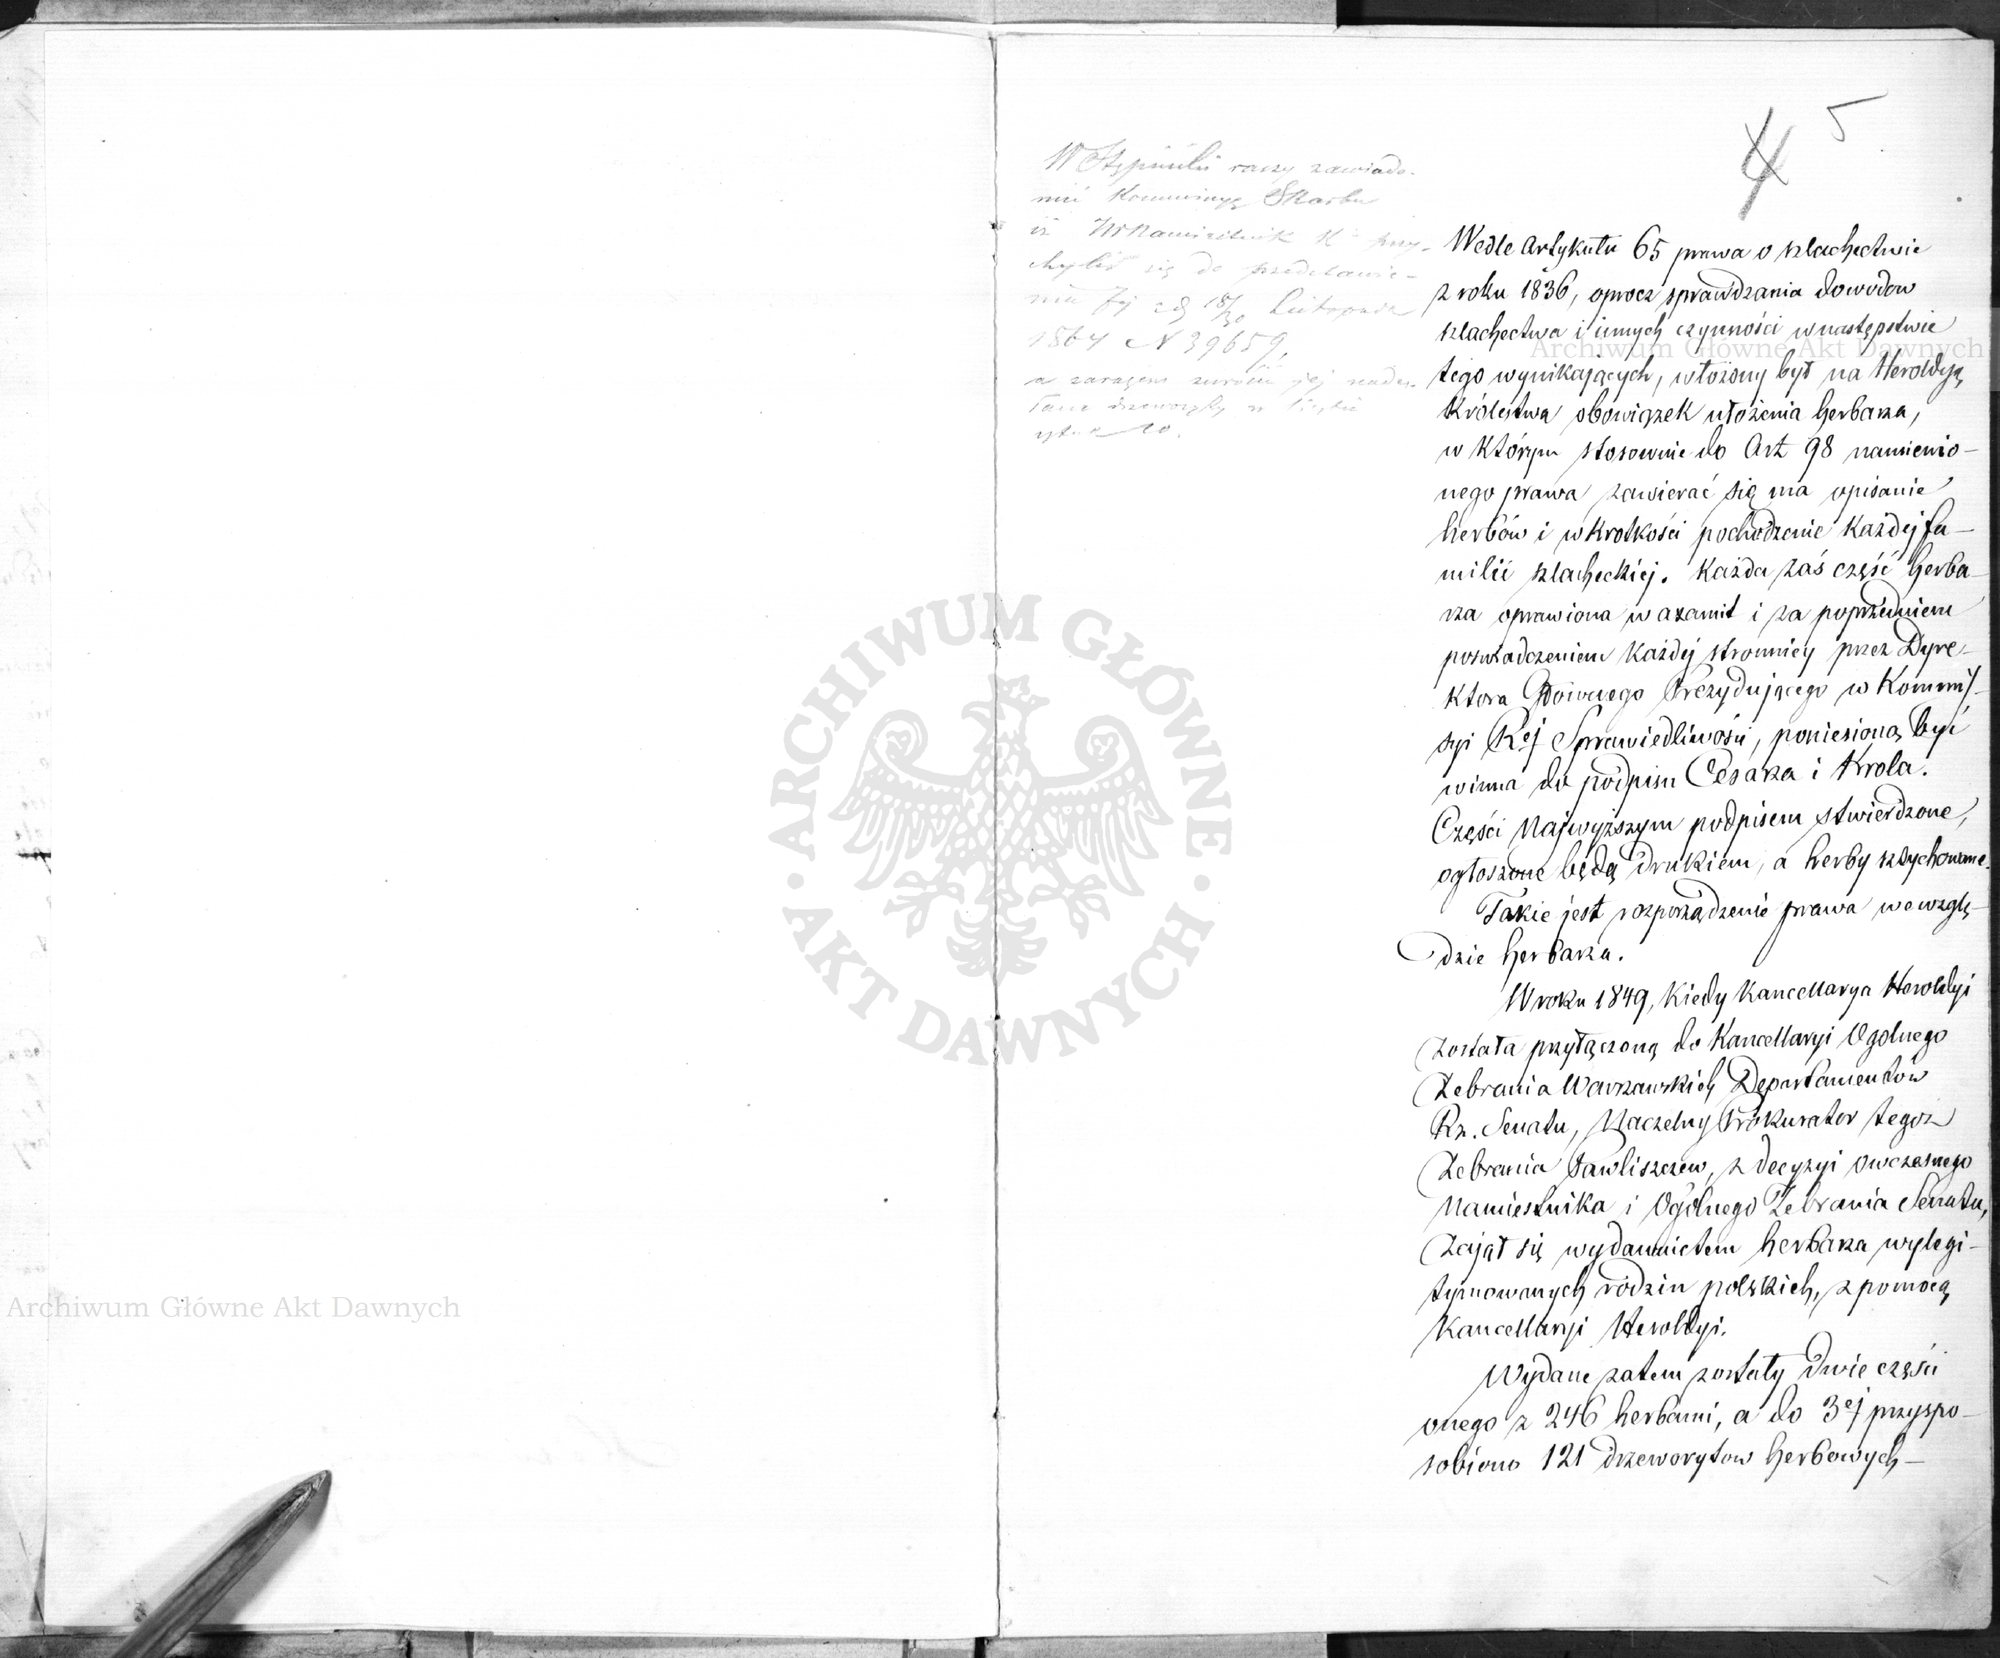 4 5
W Stępiński raczy zawiado-
mić Kommissyę Skarbu
iż JW Namiestnik Kr. przy-
chylił się do przedstawie-
nia Jej z d. 18/30 Listopada
1864 N 39659,
a zarazem zwrócić jej nade-
słane drzeworyty w liczbie
Wedle Artykułu 65 prawa o szlachectwie
z roku 1836, oprocz sprawdzania dowodow
szlachectwa i innych czynności w następstwie
tego wynikających, włożony był na Heroldyą
Królestwa obowiązek ułożenia herbarza,
w którym stosownie do Art 98 namienio-
nego prawa zawierać się ma opisanie
herbów i w krotkości pochodzenie każdej fa-
milii szlacheckiej. Każda zaś część herba-
rza oprawiona w axamit i za poprzedniem
poswiadczeniem każdej stronnicy przez Dyre-
ktora Głównego Prezydującego w Kommis-
syi Rej Sprawiedliwości, poniesioną być
winna do podpisu Cesarza i Krola.
Części Najwyższym podpisem stwierdzone,
ogłoszone będą drukiem, a herby sztychowane.
Takie jest rozporządzenie prawa we wzglę-
dzie herbarza.
W roku 1849, kiedy Kancellarya Heroldyi
została przyłączoną do Kancellaryi Ogolnego
Zebrania Warszawskich Departamentów
Rz. Senatu, Naczelny Prokurator tegoż
Zebrania Pawliszczew, z decyzyi owczesnego
Namiestnika i Ogólnego Zebrania Senatu,
zajął się wydawnictwem herbarza wylegi-
tymowanych rodzin polskich, z pomocą
Kancellaryi Heroldyi.
Wydane zatem zostały dwie części
onego z 246 herbami, a do 3ej przyspo-
sobiono 121 drzeworytow herbowych-
ARCHIWUM GŁÓWNE AKT DAWNYCH
Archiwum Główne Akt Dawnych
Archiwum Główne Akt Dawnych